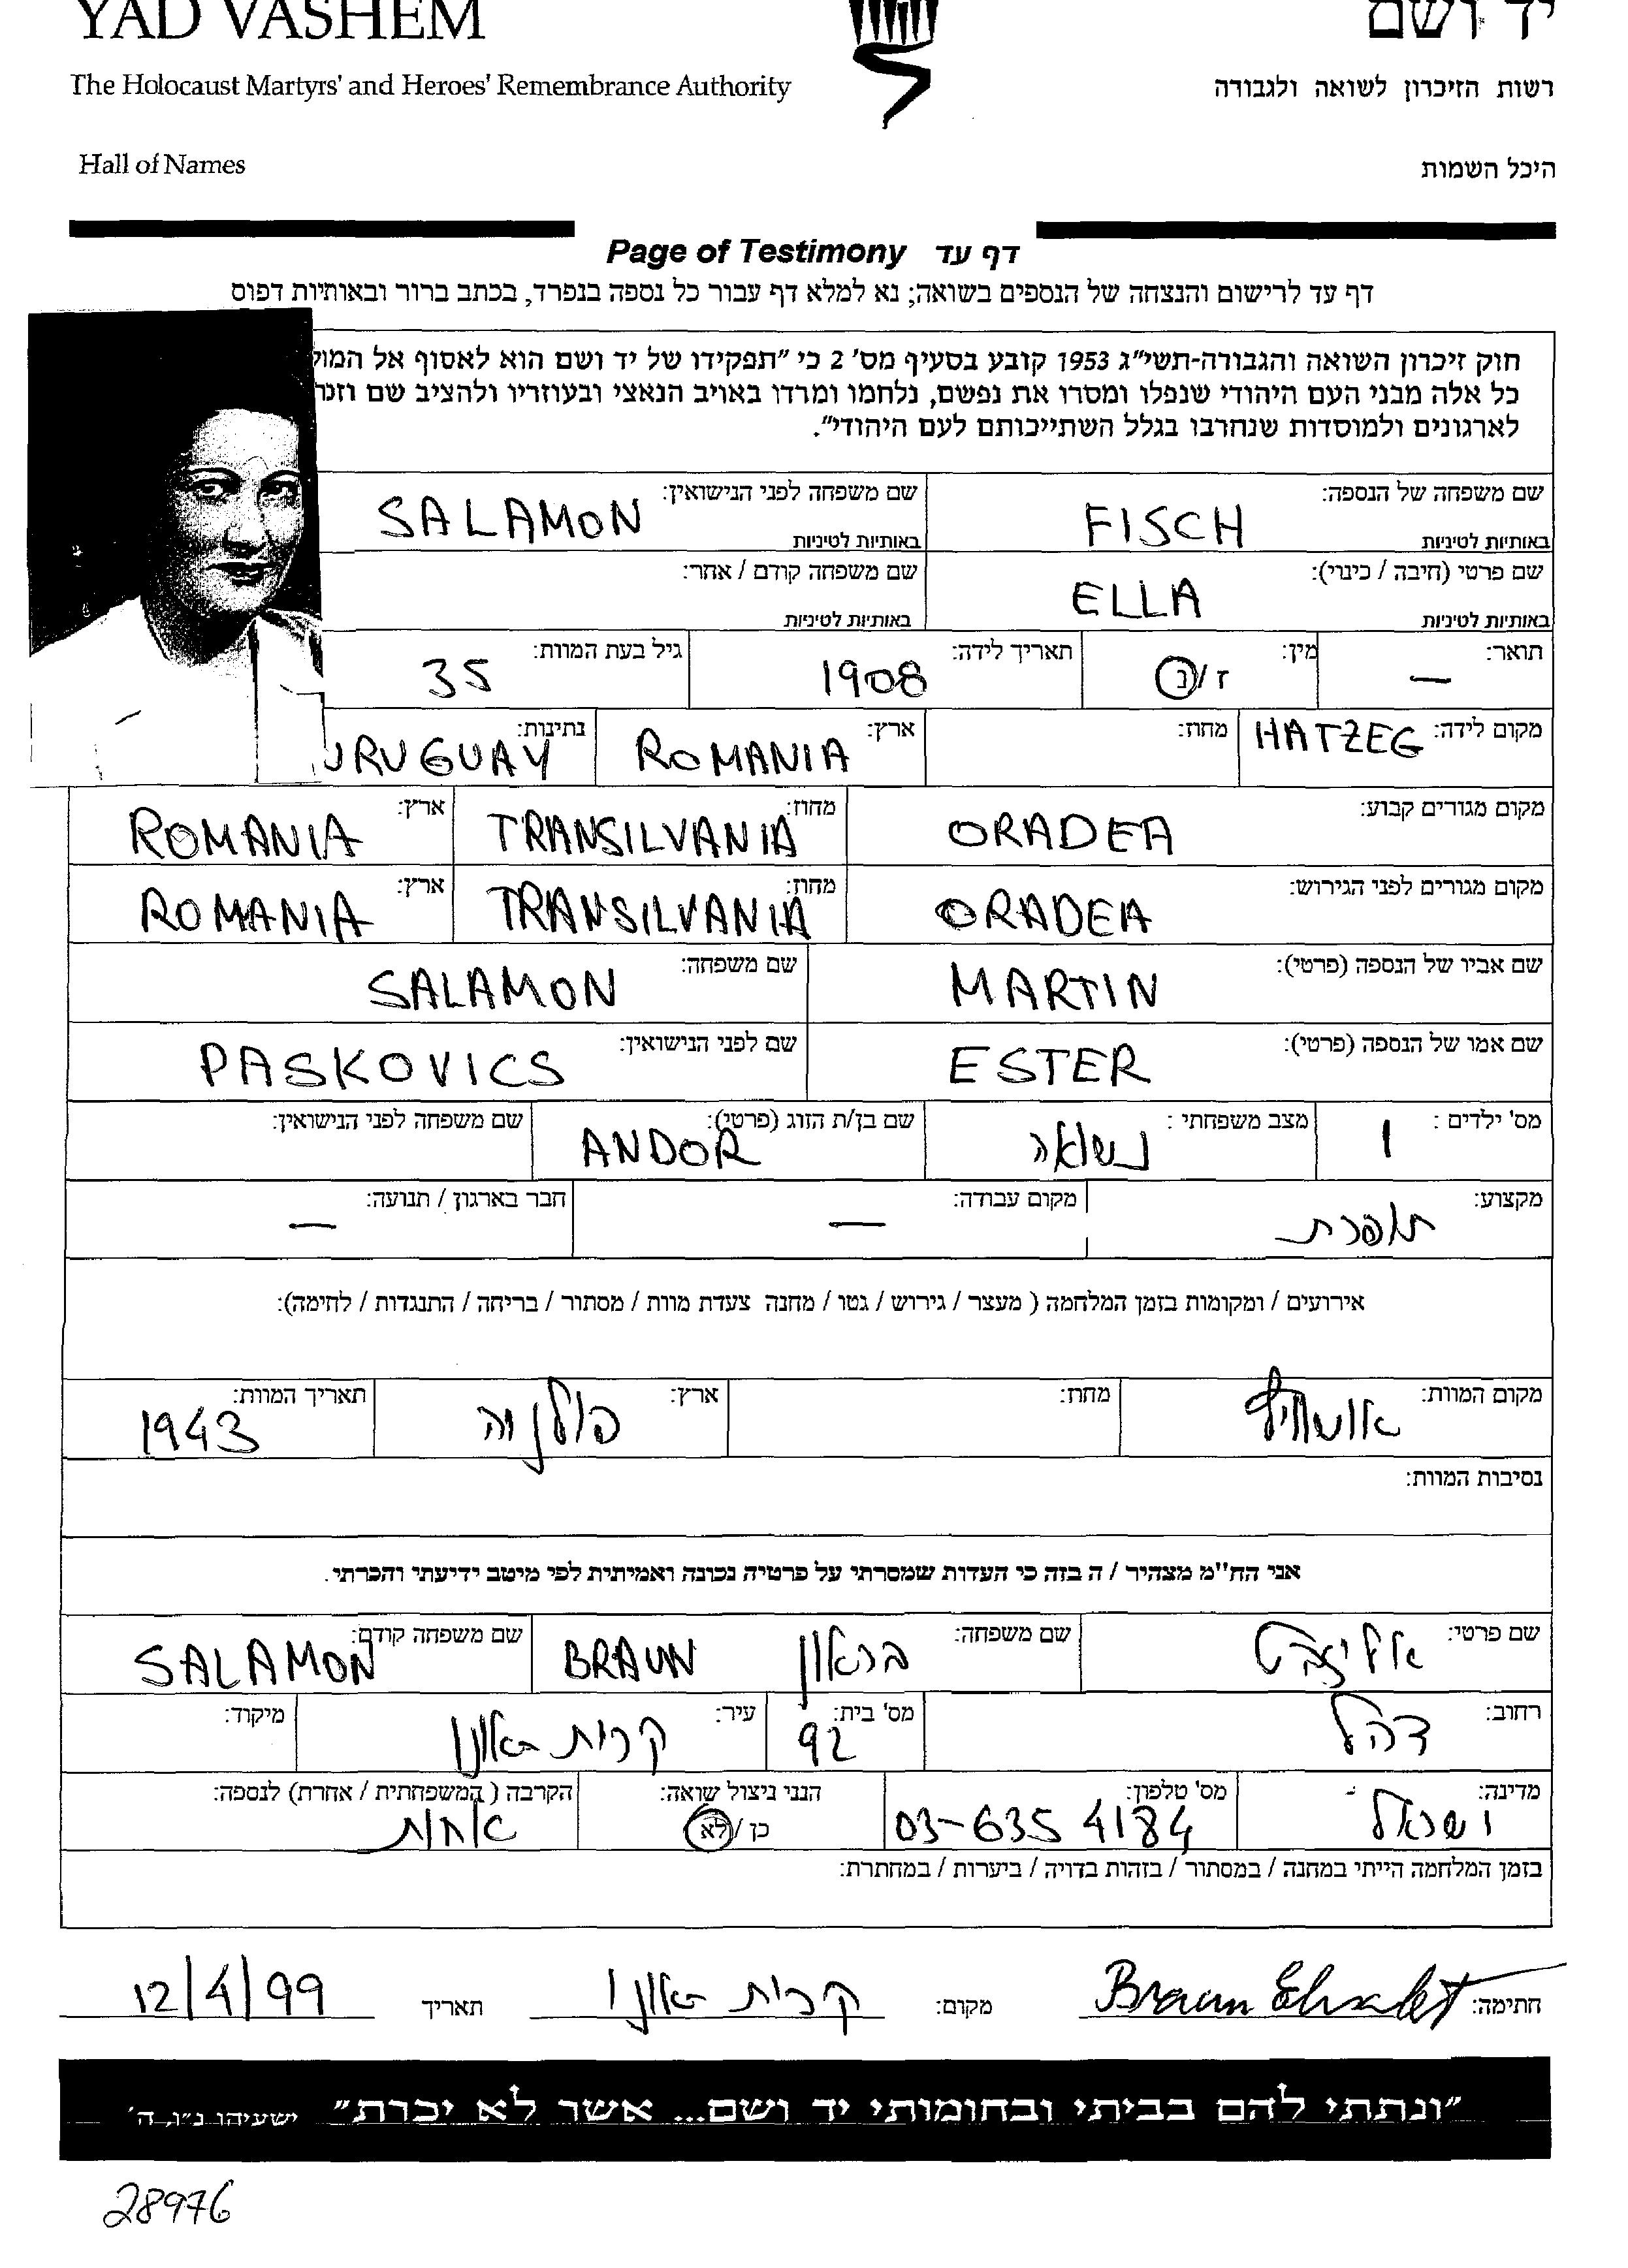 YAD VASHEM יד ושם
The Holocaust Martyrs' and Heroes' Remembrance Authority רשות הזיכרון לשואה ולגבורה
Hall of Names היכל השמות
Page of Testimony דף עד
דף עד לרישום והנצחה של הנספים בשואה; נא למלא דף עבור כל נספה בנפרד, בכתב ברור ובאותיות דפוס
חוק זיכרון השואה והגבורה-תשי"ג 1953 קובע בסעיף מס' 2 כי "תפקידו של יד ושם הוא לאסוף אל
כל אלה מבני העם היהודי שנפלו ומסרו את נפשם, נלחמו ומרדו באויב הנאצי ובעוזריו ולהציב שם
לארגונים ולמוסדות שנחרבו בגלל השתייכותם לעם היהודי".
שם משפחה של הנספה: FISCH שם משפחה לפני הנישואין: SALAMON
באותיות לטיניות באותיות לטיניות
שם פרטי (חיבה / כינוי): ELLA שם משפחה קודם / אחר:
באותיות לטיניות באותיות לטיניות
תואר: — מין: ז / נ תאריך לידה: 1908 גיל בעת המוות: 35
מקום לידה: HATZEG מחוז: ארץ: ROMANIA נתינות: URUGUAY
מקום מגורים קבוע: ORADEA מחוז: TRANSILVANIA ארץ: ROMANIA
מקום מגורים לפני הגירוש: ORADEA מחוז: TRANSILVANIA ארץ: ROMANIA
שם אביו של הנספה (פרטי): MARTIN שם משפחה: SALAMON
שם אמו של הנספה (פרטי): ESTER שם לפני הנישואין: PASKOVICS
מס' ילדים : 1 מצב משפחתי : נשואה שם בן/ת הזוג (פרטי): ANDOR שם משפחה לפני הנישואין:
מקצוע: תופרת מקום עבודה: — חבר בארגון / תנועה: —
אירועים / ומקומות בזמן המלחמה ( מעצר / גירוש / גטו / מחנה צעדת מוות / מסתור / בריחה / התנגדות / לחימה):
מקום המוות: אושוויץ מחוז: ארץ: פולניה תאריך המוות: 1943
נסיבות המוות:
אני הח"מ מצהיר / ה בזה כי העדות שמסרתי על פרטיה נכונה ואמיתית לפי מיטב ידיעתי והכרתי.
שם פרטי: אליזבט שם משפחה: בראון BRAUN שם משפחה קודם: SALAMON
רחוב: צהל מס' בית: 92 עיר: קרית אונו מיקוד:
מדינה: ישראל מס' טלפון: 03-635 4184 הנני ניצול שואה: כן / לא הקרבה ( המשפחתית / אחרת) לנספה: אחות
בזמן המלחמה הייתי במחנה / במסתור / בזהות בדויה / ביערות / במחתרת:
חתימה: Braun Elisabet מקום: קרית אונו תאריך 12/4/99
"ונתתי להם בביתי ובחומותי יד ושם... אשר לא יכרת" ישעיהו נ"ו, ה'
28976